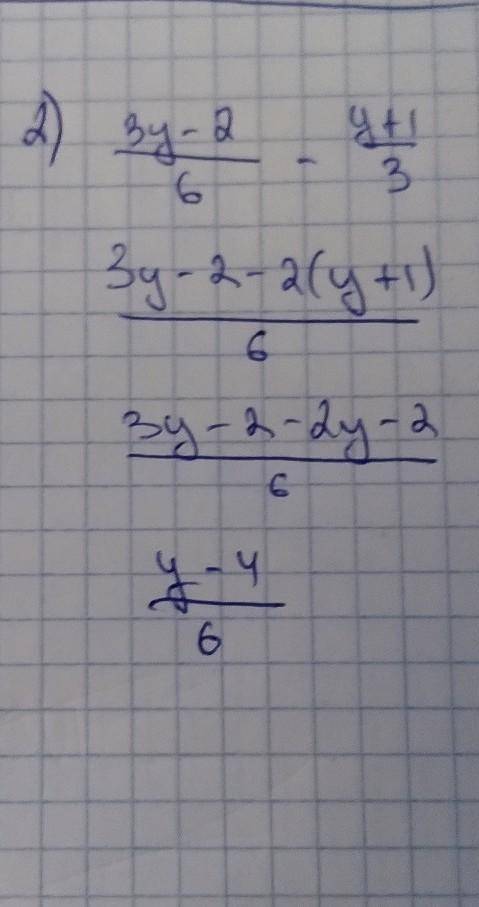 2) (3y - 2)/6 - (y + 1)/3
(3y - 2 - 2(y + 1))/6
(3y - 2 - 2y - 2)/6
(y - 4)/6